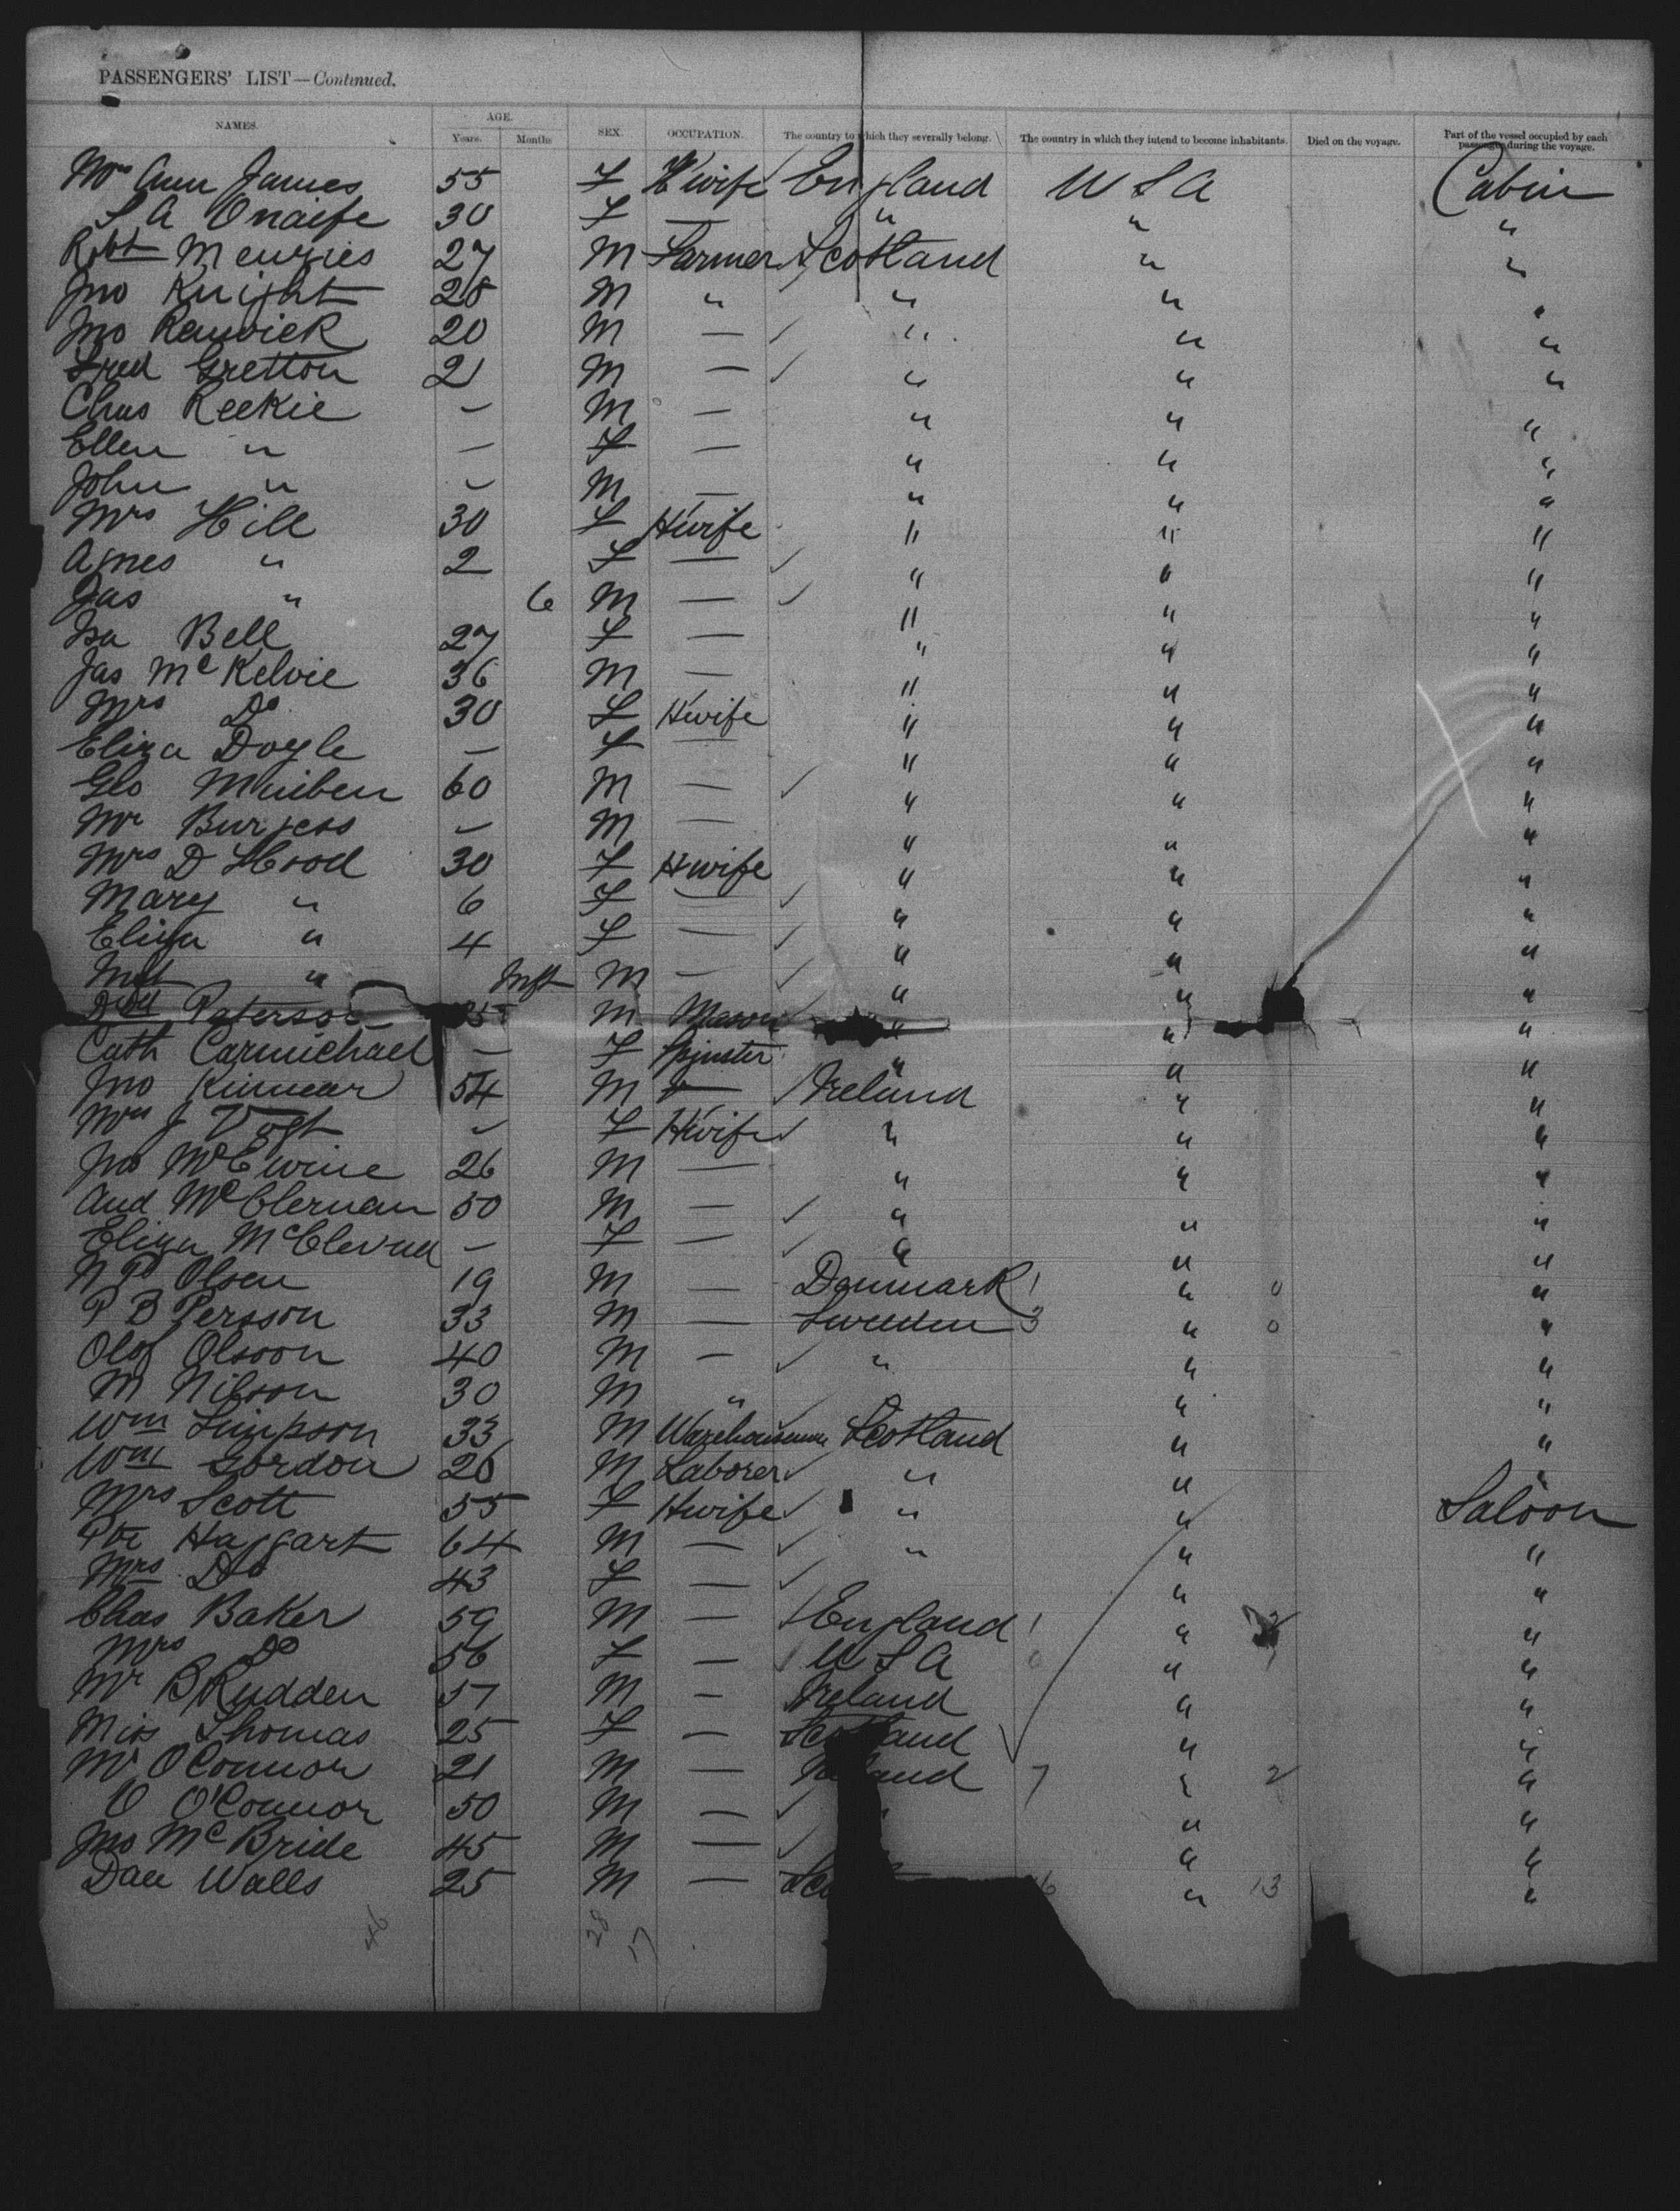 PASSENGERS' LIST—Continued.
NAMES. AGE. Years. Months SEX. OCCUPATION. The country to which they severally belong. The country in which they intend to become inhabitants. Died on the voyage. Part of the vessel occupied by each passenger during the voyage.
Mrs Ann James 55 F H'wife England U S A Cabin
S A Onaife 30 F — " " "
Robt Menzies 27 M Farmer Scotland " "
Jno Knight 28 M " " " "
Jno Renwick 20 M — " " "
Fred Gretton 21 M — " " "
Chas Reekie — M — " " "
Ellen " — F — " " "
John " — M — " " "
Mrs Hill 30 F H'wife " " "
Agnes " 2 F — " " "
Jas " 6 M — " " "
Isa Bell 27 F — " " "
Jas McKelvie 36 M — " " "
Mrs Do 30 F H'wife " " "
Eliza Doyle — F — " " "
Geo 60 M — " " "
Mr Burgess — M — " " "
Mrs D Hood 30 F H'wife " " "
Mary " 6 F — " " "
Eliza " 4 F — " " "
Inft " Inft M — " " "
Paterson M Mason " " "
Cath Carmichael — F Spinster " " "
Jno Kinnear 54 M — Ireland " "
Mrs J Vogt — F H'wife " " "
Jno McEwine 26 M — " " "
And McClernan 50 M — " " "
Eliza — F — " " "
N P Olsen 19 M — Denmark 1 " 0 "
P B Persson 33 M — Sweden 3 " 0 "
Olof Olsson 40 M — " " "
M Nilsson 30 M " " "
Wm Simpson 33 M Warehouseman Scotland " "
Wm Gordon 26 M Laborer " " "
Mrs Scott 55 F H'wife " " Saloon
Ptr Haggart 64 M — " " "
Mrs Do 43 F — " "
Chas Baker 59 M — England 1 " 2 "
Mrs Do 56 F — U S A 0 " 1 "
Mr B Rudden 57 M — Ireland " "
Miss Thomas 25 F — Scotland " "
Mr O'Connor 21 M — Ireland 7 " 2 "
O O'Connor 50 M — " " "
Jno McBride 45 M — " "
Dan Walls 25 M — 6 " 13 "
46 28 17